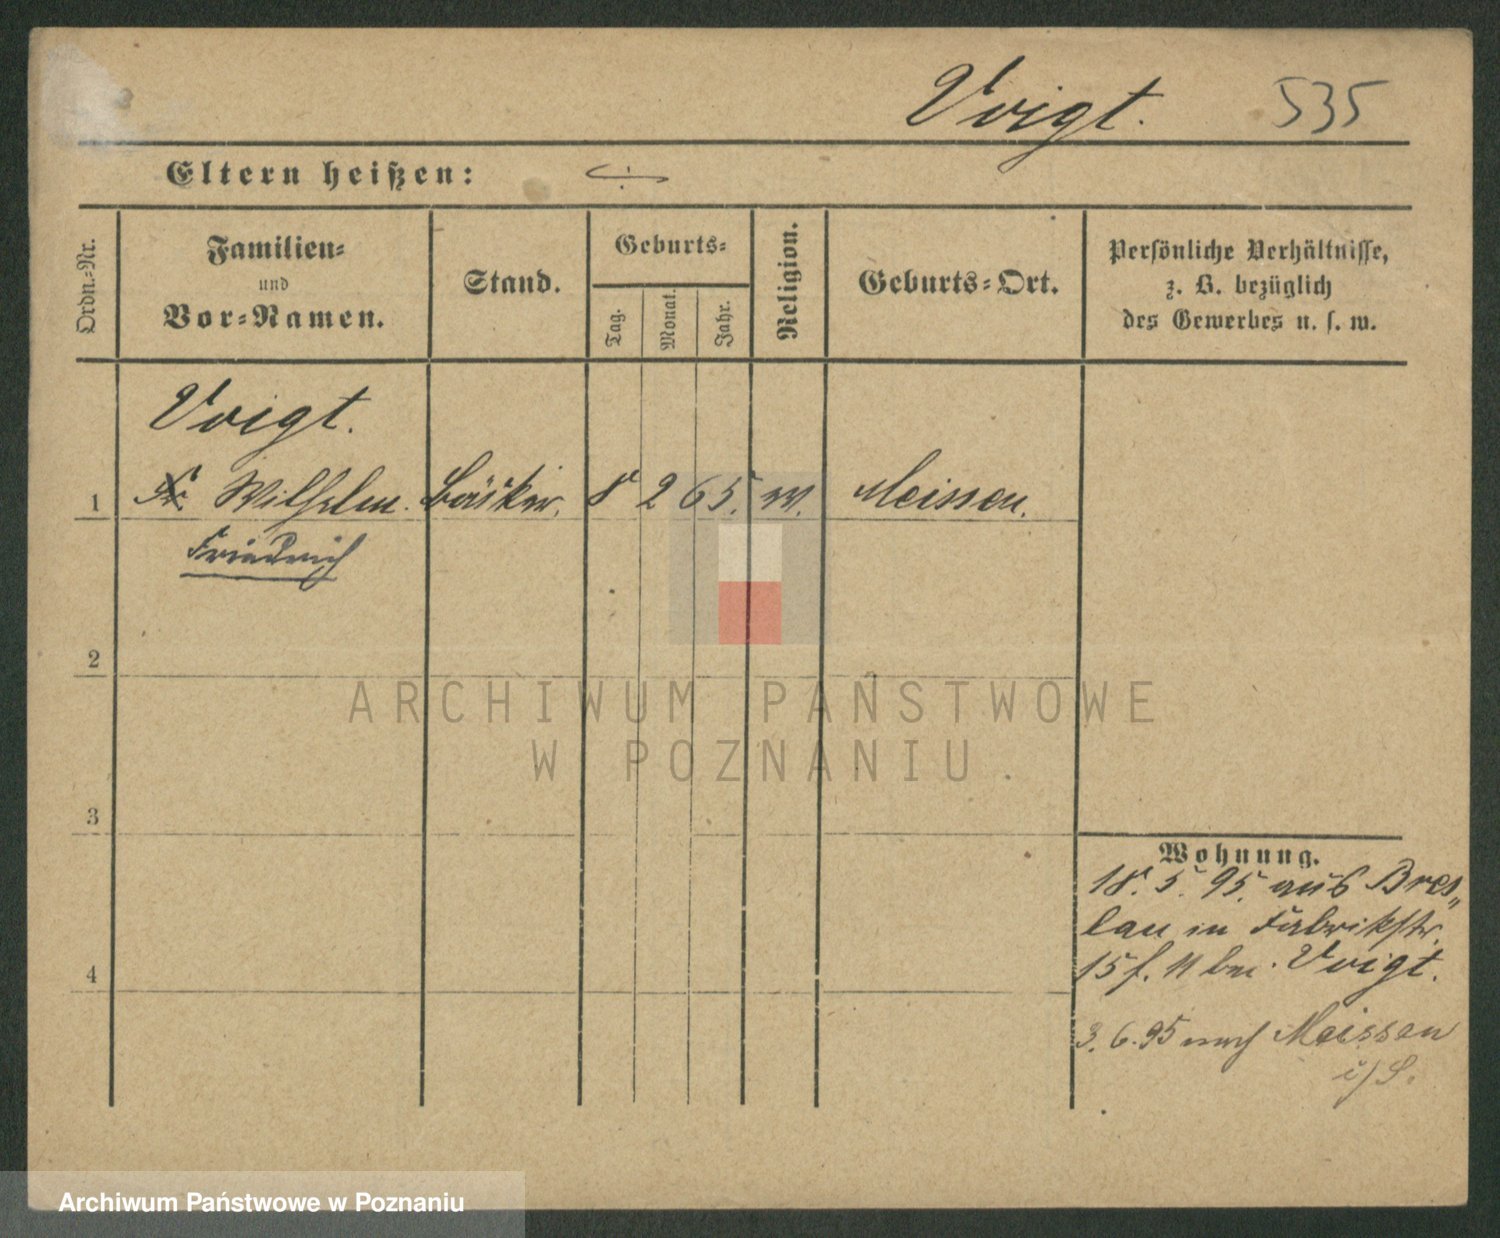 Voigt. 535
Eltern heißen:
Ordn.-Nr.
Familien-
und
Vor-Namen.
Stand.
Geburts-
Tag.
Monat.
Jahr.
Religion.
Geburts-Ort.
Persönliche Verhältnisse,
z. B. bezüglich
des Gewerbes u. s. w.
Voigt.
1 Wilhelm Bäcker. 8 2 65. Meissen.
Friedrich
2
3
4
ARCHIWUM PAŃSTWOWE
W POZNANIU
Wohnung.
18. 5. 95. aus Bres-
lau in Fabrikstr.
15 f. II bei Voigt.
3. 6. 95 nach Meissen
i/S.
Archiwum Państwowe w Poznaniu